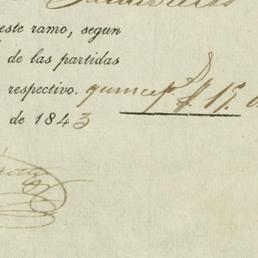 este ramo, segun
de las partidas
respectivo. quince p.s $ 15. 
de 1843